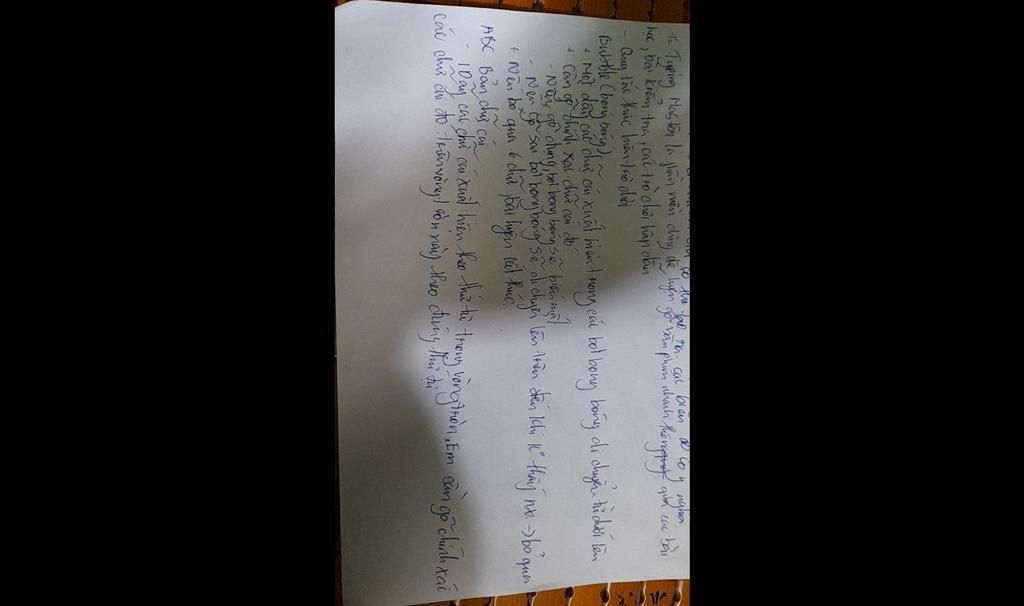 có thể tạo ra các biểu đồ có ý nghĩa
12. Typing Master là phần mềm dùng để luyện gõ bàn phím nhanh thông qua các bài
học, bài kiểm tra, các trò chơi hấp dẫn
- Quy tắc thực hiện trò chơi
Bubble (bong bóng)
+ Một dãy các chữ cái xuất hiện trong các bọt bong bóng di chuyển từ dưới lên
+ Cần gõ chính xác chữ cái đó
- Nếu gõ đúng, bọt bong bóng sẽ biến mất
- Nếu gõ sai bọt bong bóng sẽ di chuyển lên trên đến khi k° thấy nữa -> bỏ qua
+ Nếu bỏ qua 6 chữ, bài luyện kết thúc.
ABC. Bản chữ cái
- 1 Dãy các chữ cái xuất hiện theo thứ tự trong vòng tròn. Em cần gõ chính xác
các chữ cái đó trên vòng tròn này theo đúng thứ tự